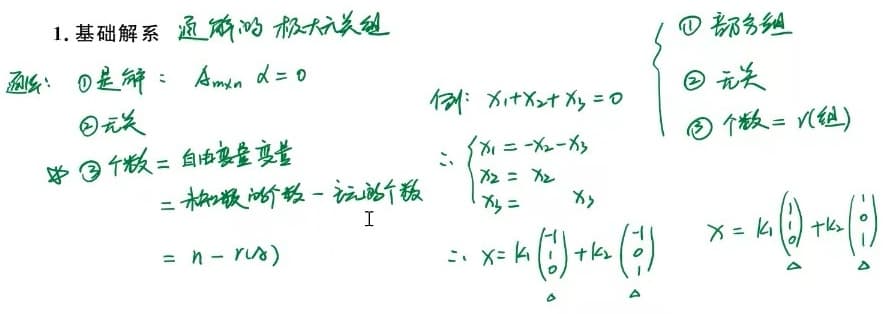 1. 基础解系 通解的极大无关组
① 部分组
② 无关
③ 个数 = r(组)
①是解: Aₘₓₙ α = 0
②无关
③个数 = 自由变量
= 未知数的个数 - 主元的个数
= n - r(A)
例: x₁+x₂+x₃=0
∴ { x₁ = -x₂-x₃
x₂ = x₂
x₃ = x₃
∴ x = k₁ (-1 1 0) + k₂ (-1 0 1)
x = k₁ (1 1 0) + k₂ (1 0 1)